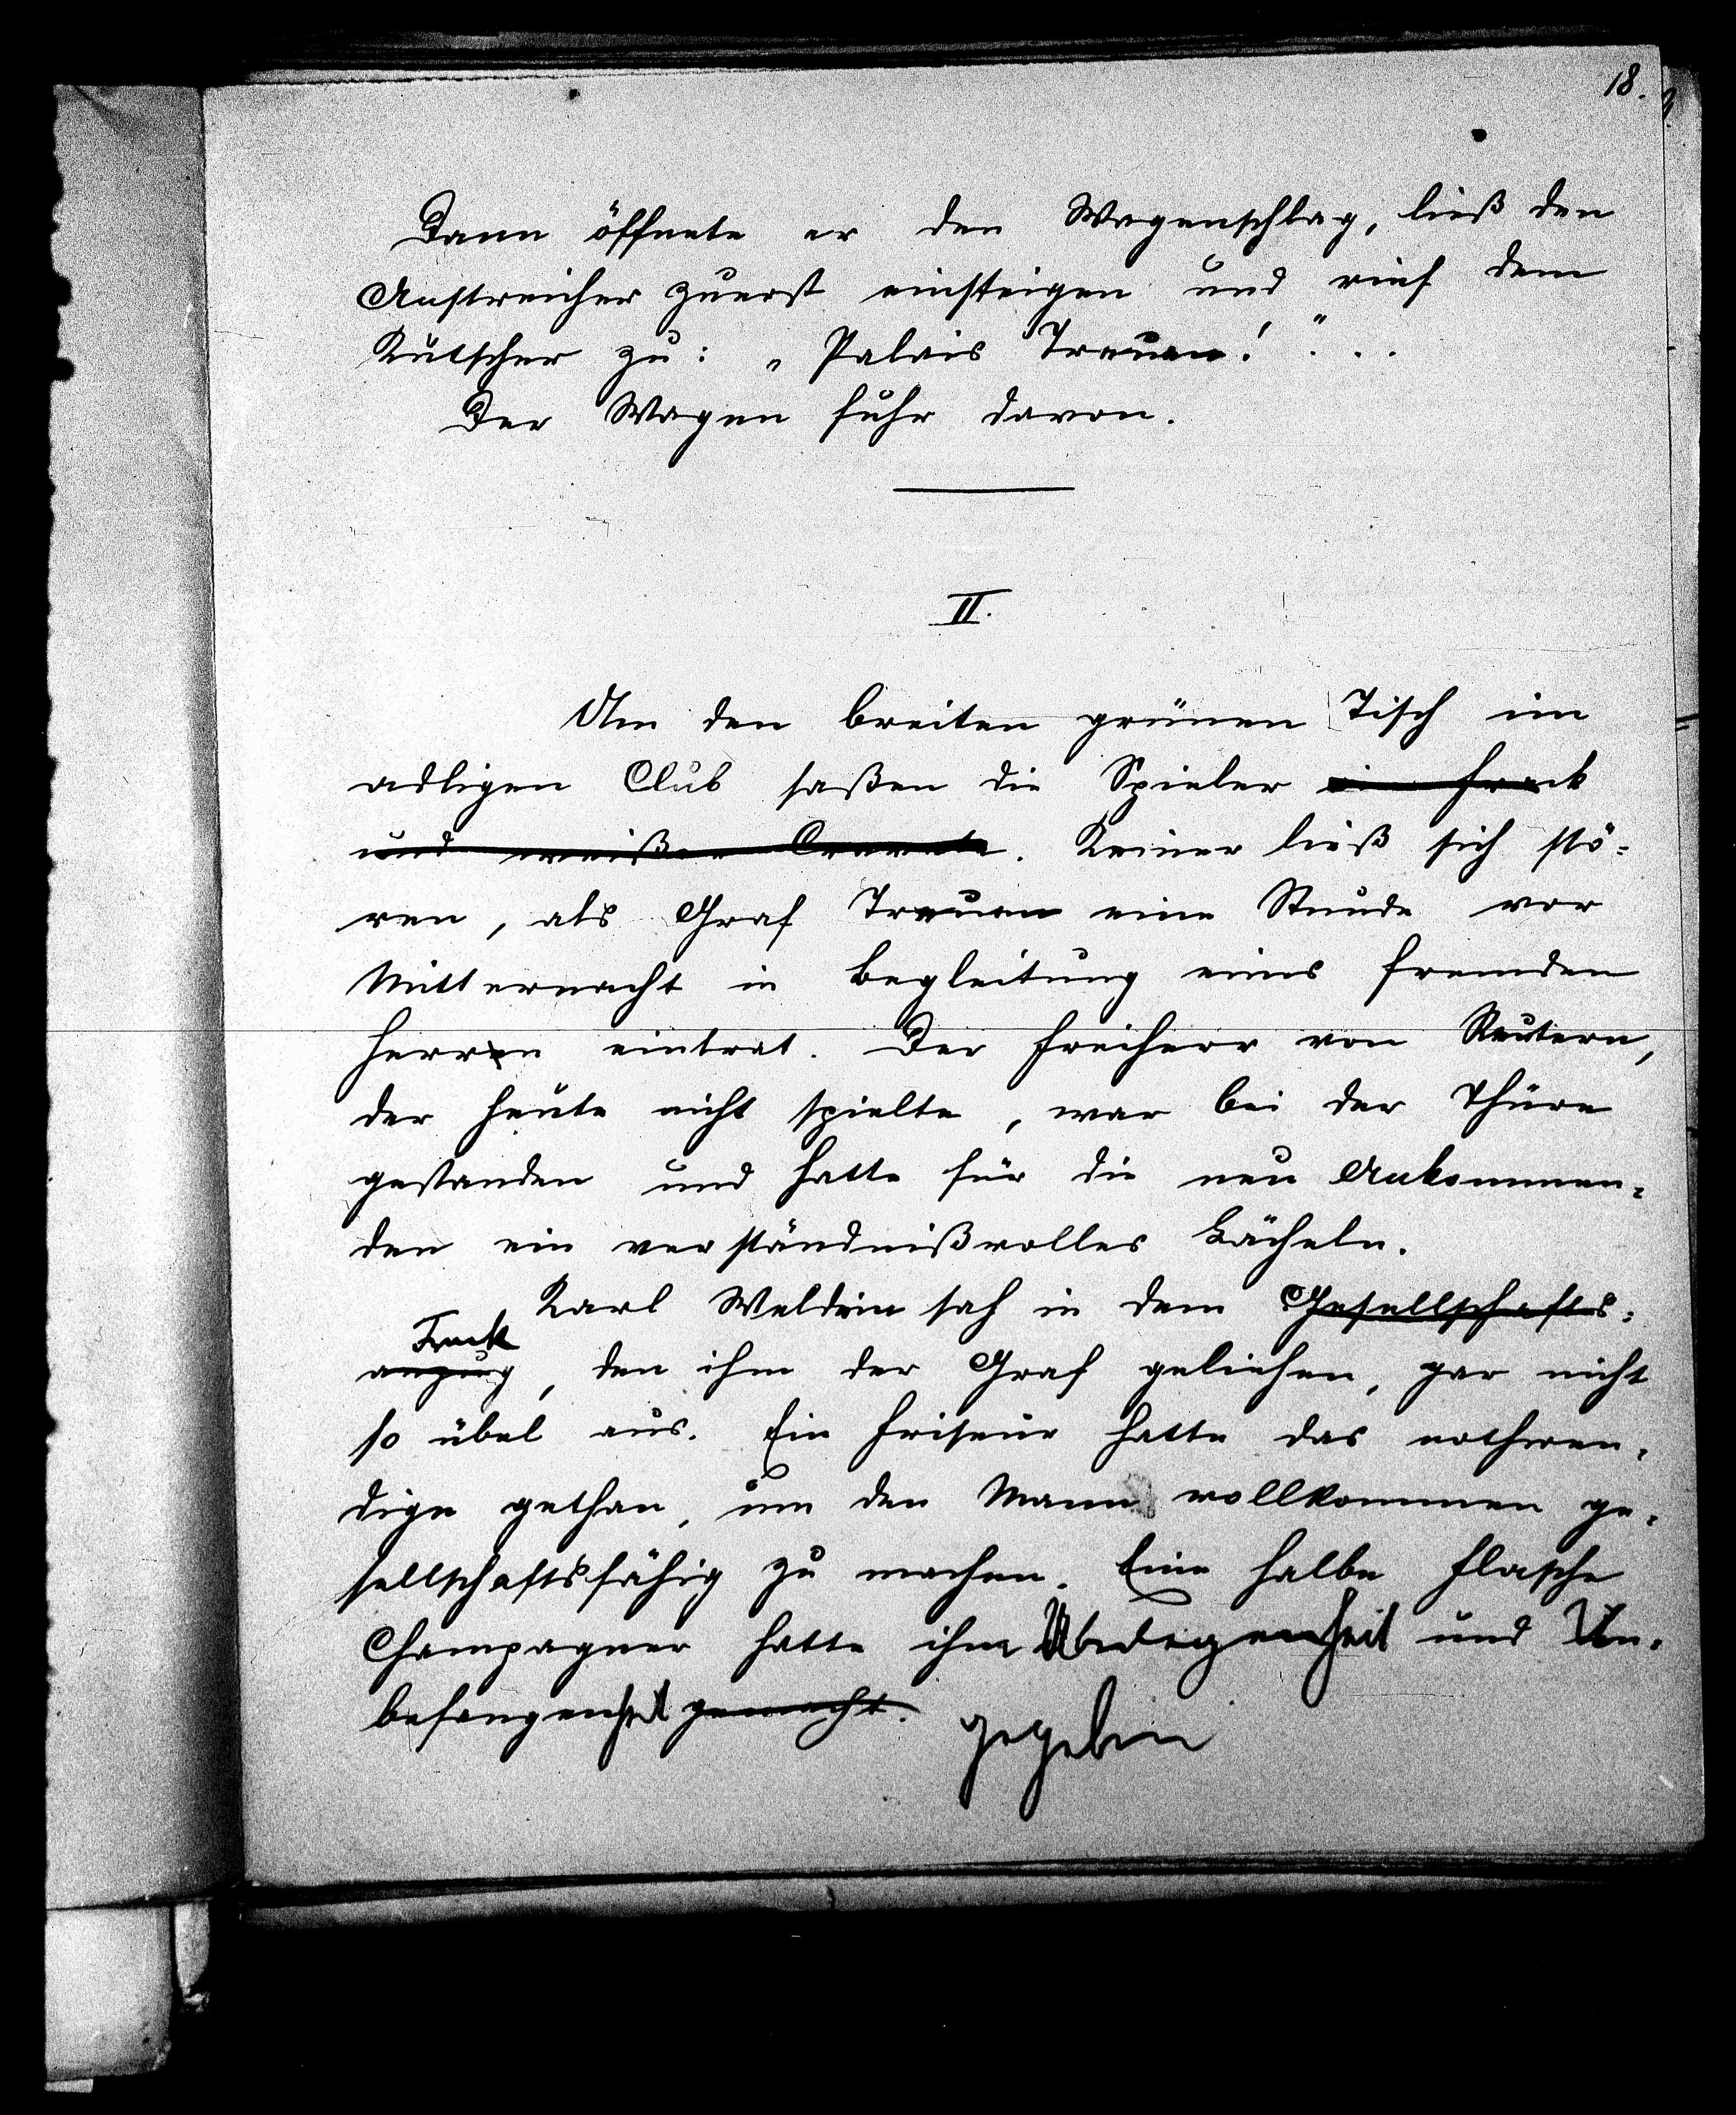 18.
Dann öffnete er den Wagenschlag, ließ den
Anstreicher zuerst einsteigen und rief dem
Kutscher zu: „Palais Treuen!“...
Der Wagen fuhr davon.
II.
Um den breiten grünen Tisch im
adligen Club saßen die Spieler im Frack
und weißer Cravate. Keiner ließ sich stö=
ren, als Graf Treuen eine Stunde vor
Mitternacht in Begleitung eines fremden
Herren eintrat. Der Freiherr von Reutern,
der heute nicht spielte, war bei der Thüre
gestanden und hatte für die neu Ankommen=
den ein verständnißvolles Lächeln.
Karl Weldein sah in dem Gesellschafts=
Frack
anzug, den ihm der Graf geliehen, gar nicht
so übel aus. Ein Friseur hatte das nothwen=
dige gethan, um den Mann vollkommen ge=
sellschaftsfähig zu machen. Eine halbe Flasche
Champagner hatte ihm Überlegenheit und Un=
befangenheit gemacht. gegeben